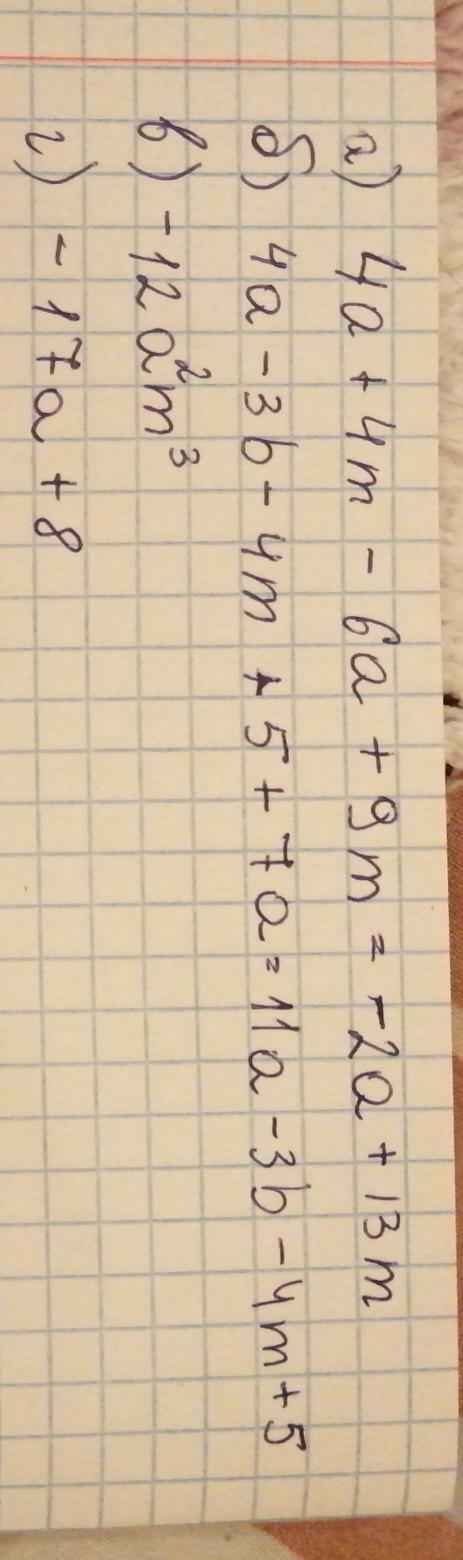 а) 4a + 4m - 6a + 9m = -2a + 13m
б) 4a - 3b - 4m + 5 + 7a = 11a - 3b - 4m + 5
в) -12a²m³
г) - 17a + 8